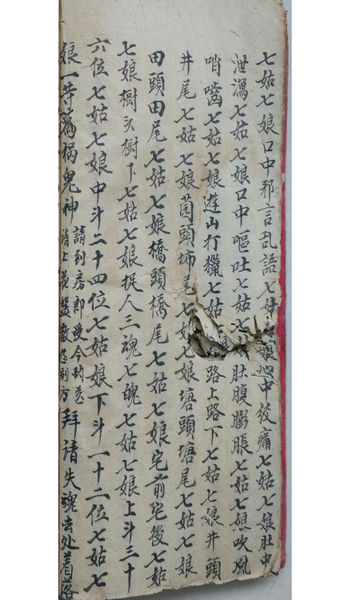 七姑七娘口中邪言乱語七姑七娘心中後痛七姑七娘肚中
泄瀉七姑七娘口中嘔吐七姑七娘肚腹膨脹七姑七娘吹風
哨嚙七姑七娘遊山打獵七姑路上路下七姑七娘井頭
井尾七姑七娘茵頭埇尾七姑七娘塘頭塘尾七姑七娘
田頭田尾七姑七娘橋頭橋尾七姑七娘宅前宅後七姑
七娘樹头樹下七姑七娘捉人三魂七魄七姑七娘上斗三十
六位七姑七娘中斗二十四位七姑七娘下斗一十二位七姑七
娘一等為禍鬼神 請到房即受今 請上 拜請失魂去处着落